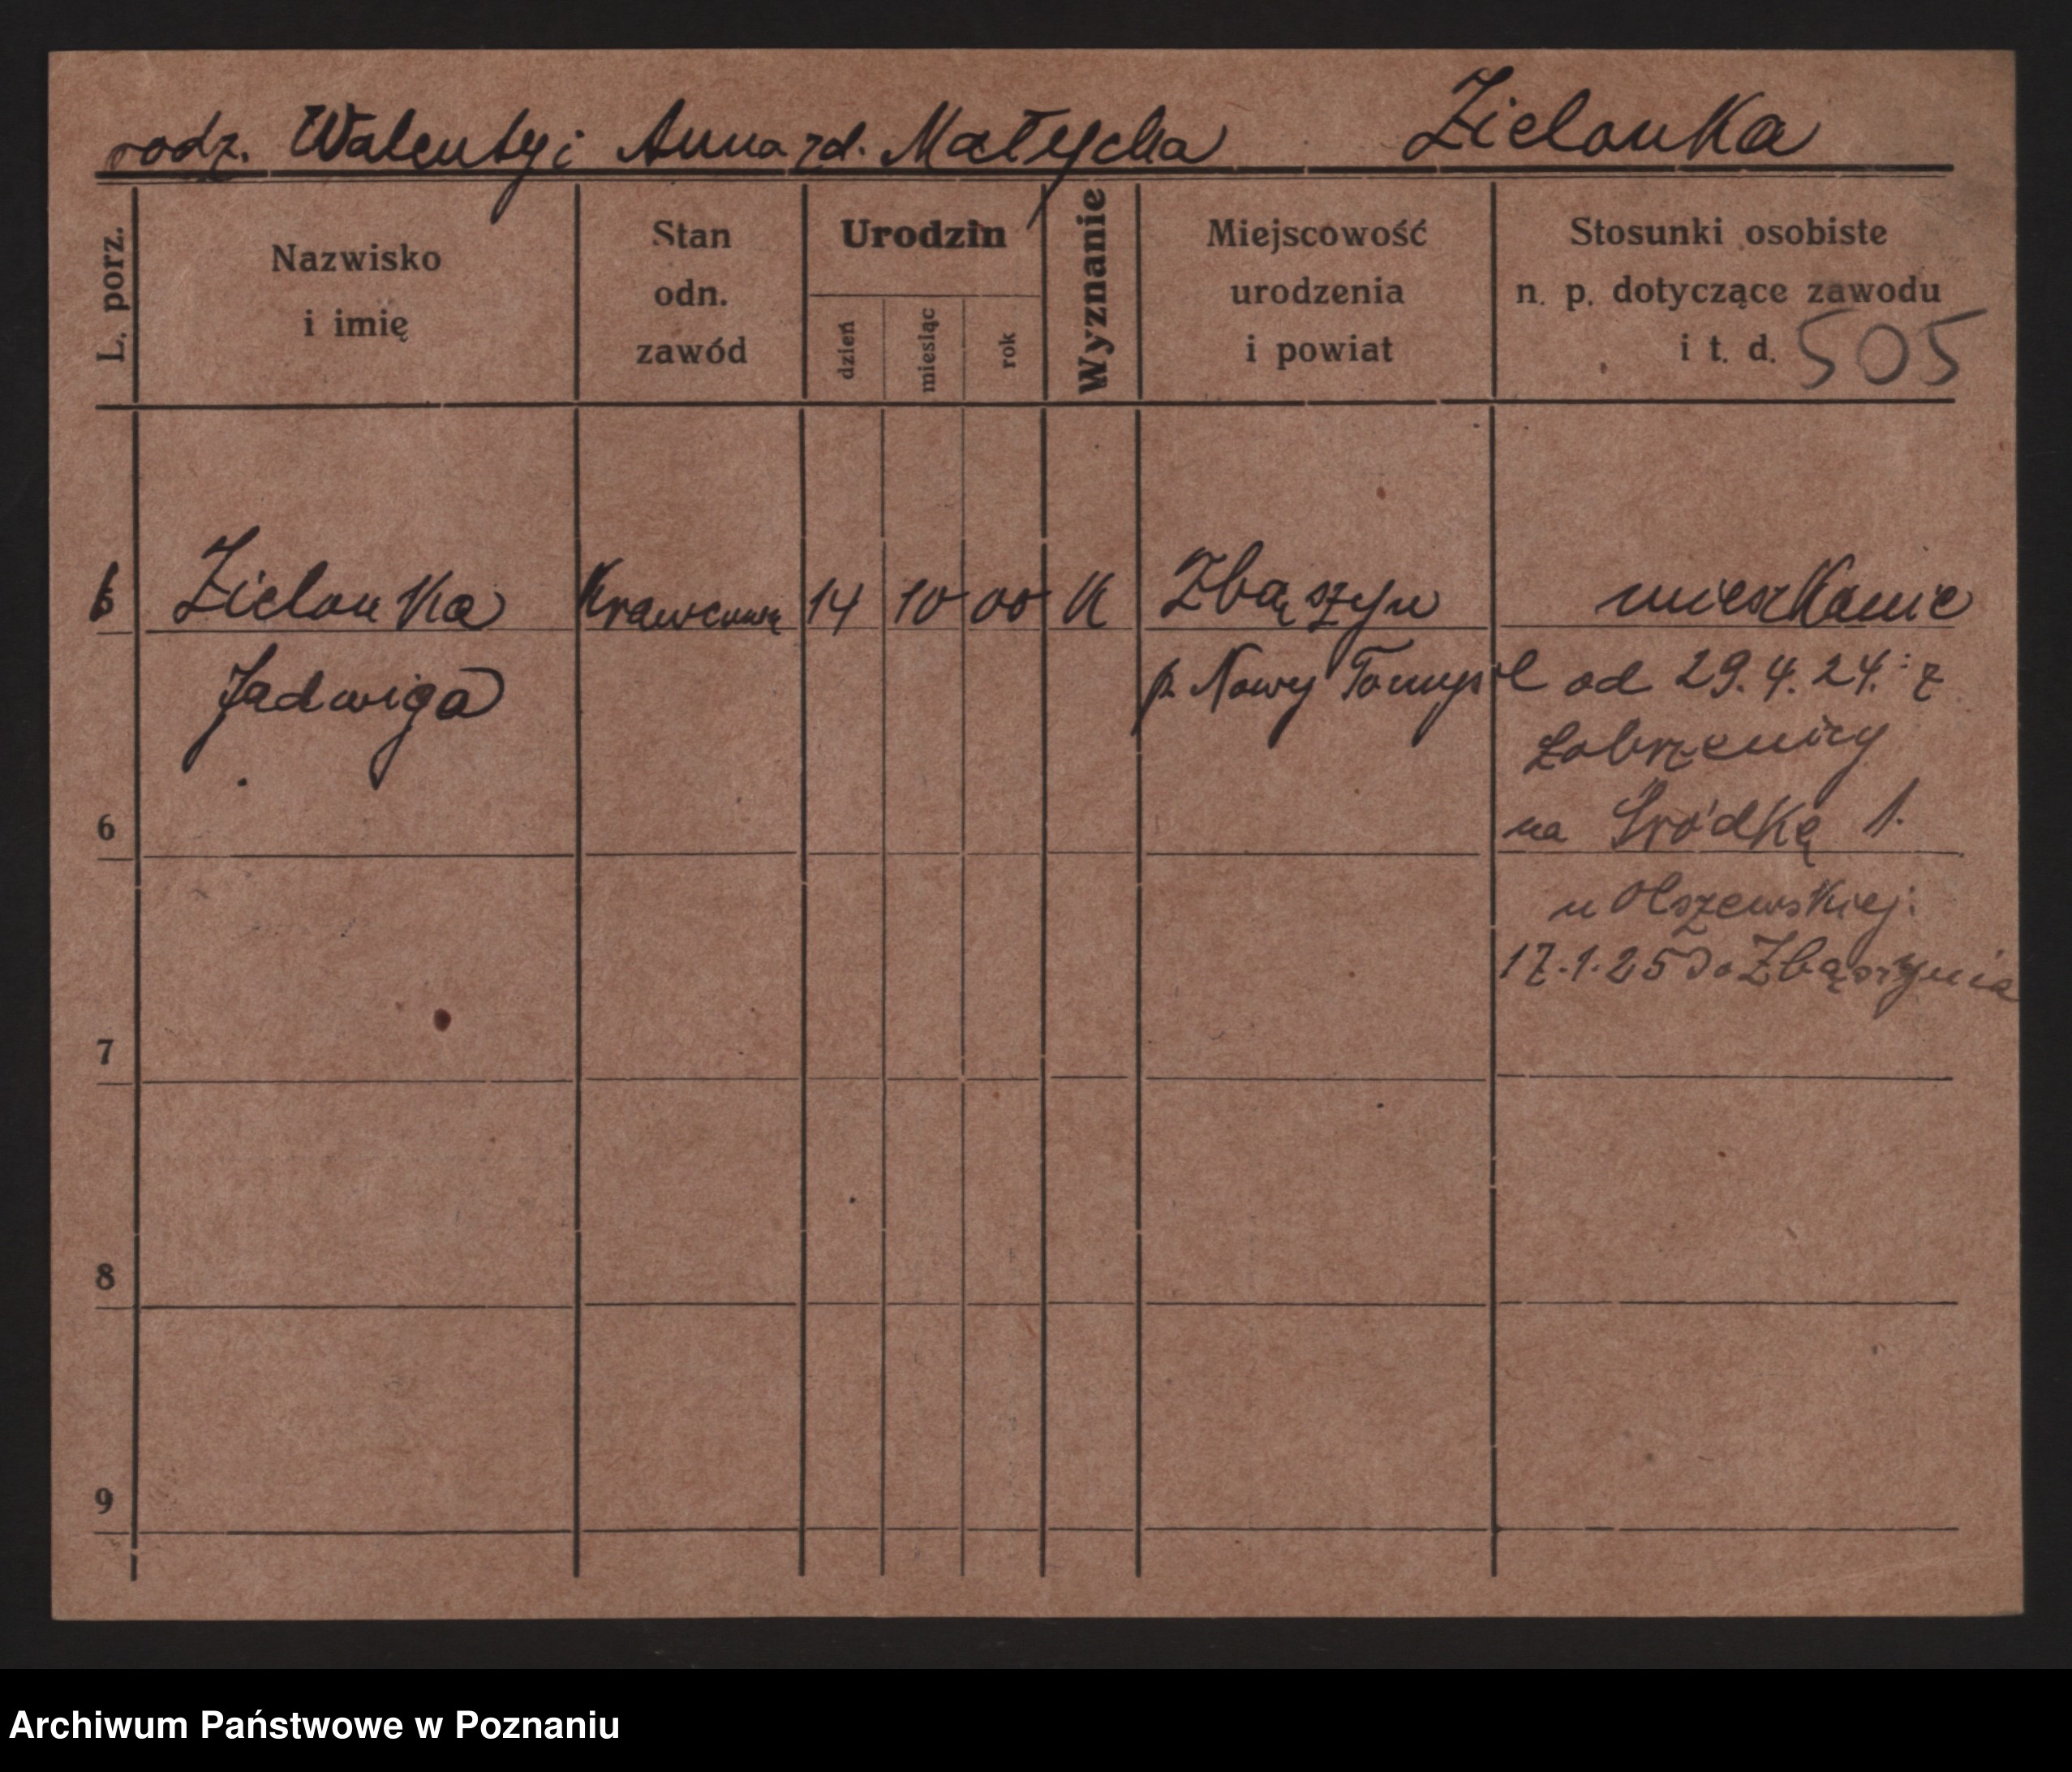 rodz. Walenty i Anna zd. Małycha Zielonka
L. porz.
Nazwisko
i imię
Stan
odn.
zawód
Urodzin
dzień
miesiąc
rok
Wyznanie
Miejscowość
urodzenia
i powiat
Stosunki osobiste
n. p. dotyczące zawodu
i t. d. 505
Zielonka 14 10 00 K Zbąszyn mieszkanie
Jadwiga p. Nowy Tomysl od 29.4.24. z
Łobrzenicy
6 na Śródkę 1.
u Olszewskiej.
17.1.25 do Zbąszynia
7
8
9
Archiwum Państwowe w Poznaniu